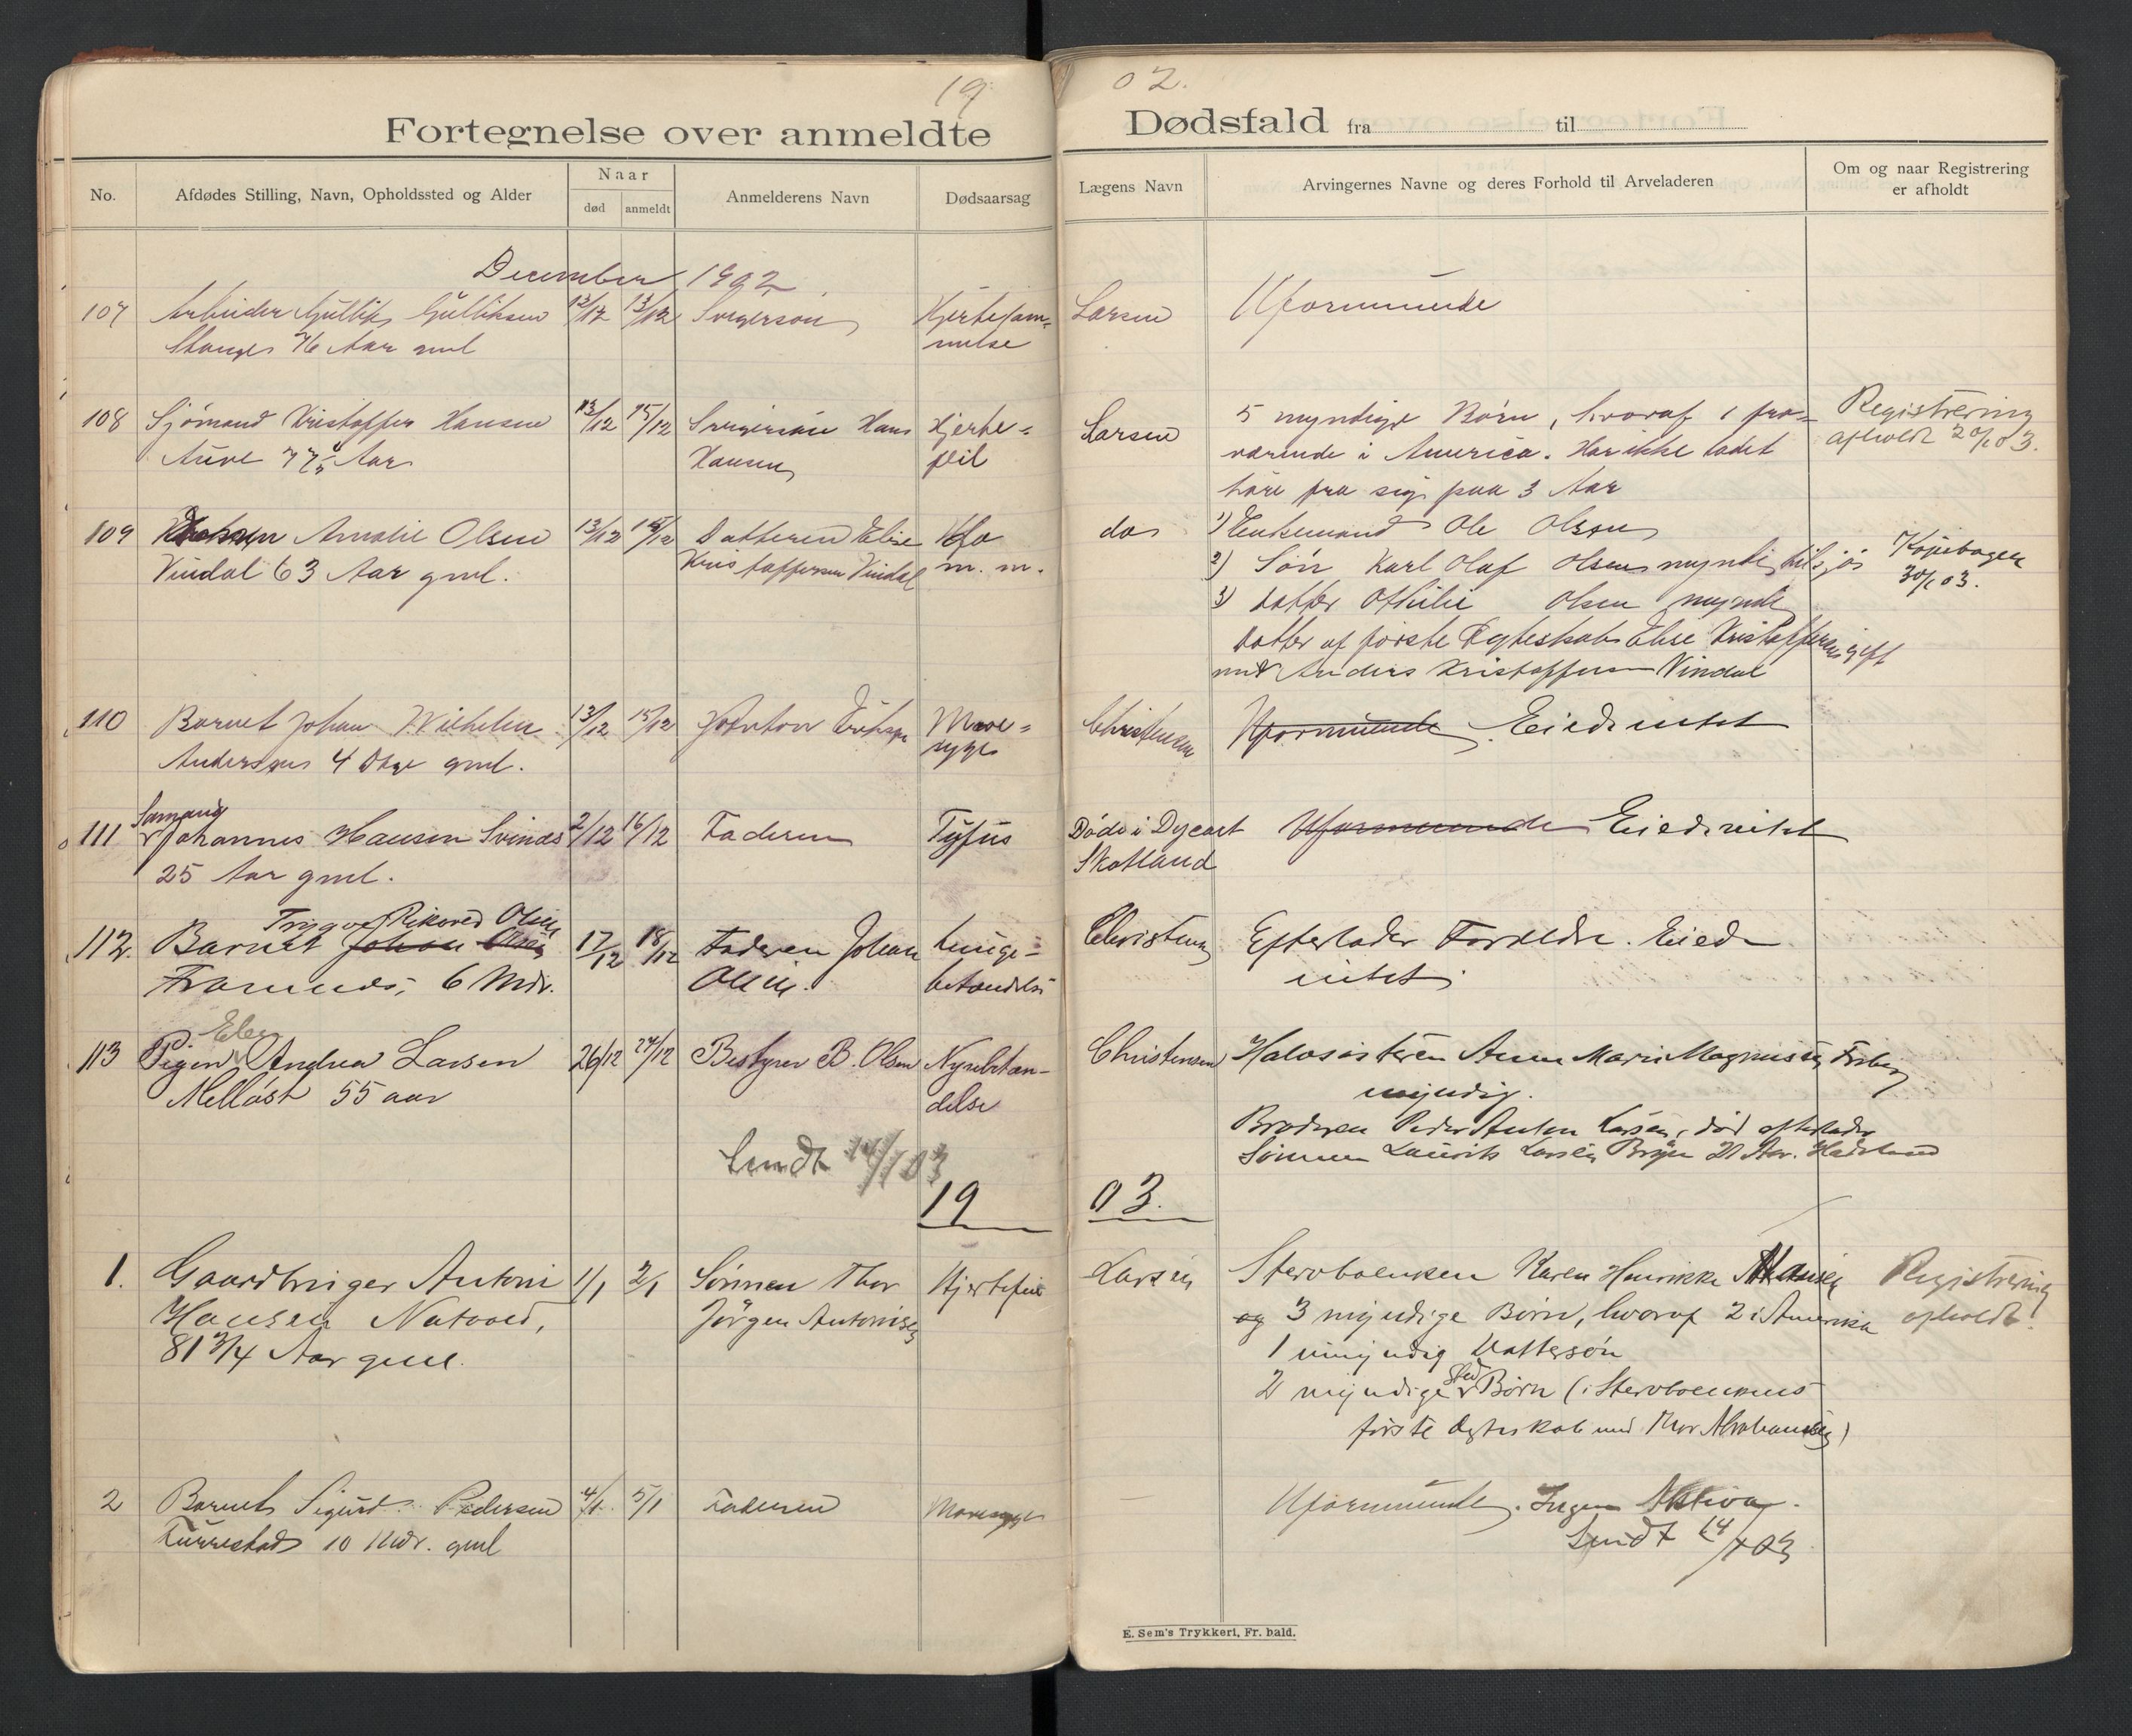 19 02.
Fortegnelse over anmeldte Dødsfald fra til
No.
Afdødes Stilling, Navn, Opholdssted og Alder
Naar
død
anmeldt
Anmelderens Navn
Dødsaarsag
Lægens Navn
Arvingernes Navne og deres Forhold til Arveladeren
Om og naar Registrering
er afholdt
December 1902
107 Arbeider Gullik Gulliksen 12/12 13/12 Svigerson Hjertelam- Larsen Uformuende
76 Aar gml melse
108 Sjömand Kristoffer Hansen 13/12 15/12 Svigersön Hans Hjerte- Larsen 5 myndige Börn, hvoraf 1 fra- Registrering
Aar Hansen feil værende i America. Har ikke ladet afholdt
höre fra sig paa 3 Aar
109 Amalie Olsen 13/12 15/12 Datteren Elise do 1) Enkemand Ole Olsen
Vindal 63 Aar gml. Kristoffersen Vindal m. m. 2) Sön Karl Olaf Olsen myndig tilsjös
30/1 03.
3) Datter Othilie Olsen myndig
Datter af förste Egteskab Elise Kristoffersen gift
med Anders Kristoffersen Vindal
110 Barnet Johan Wilhelm 13/12 15/12 Mave- Christensen Uformuende. Eied intet
Andersen 4 Dage gml. syge
111 Johannes Hansen 2/12 16/12 Faderen Tyfus Döde i Dysart Uformuende Eied intet
25 Aar gml. Skotland
Trygve Rikard Olsen
112. Barnet Johan Olsen 17/12 18/12 Faderen Johan Lunge- Christensen Efterlader Forældre. Eied
Framnes, 6 Mdr. Olsen. betændelse intet
113 Pigen Andrea Larsen 26/12 27/12 Bestyrer B. Olsen Nyrebetæn- Christensen Halvsösteren Anne Marie Magnussen
Melløst 55 aar delse myndig.
Broderen Peder Anton Larsen, död efterlader
Sönnen Laurits Larsen 21 Aar.
Sendt 14/1 03
19 03.
1. Gaardbruger Antoni 1/1 2/1 Sönnen Thor Hjertefeil Larsen Stervboenken Karen Henrikke Registrering
Hansen Natvoll, Jörgen Antonisen og 3 myndige Börn, hvoraf 2 i Amerika afholdt.
81 3/4 Aar gml. 1 umyndig Dattersön
2 myndige Sted Börn (i Stervboenkens
förste Egteskab med Thor Abrahamsen)
2 Barnet Sigurd Pedersen 4/1 5/1 Faderen Mavesyge Uformuende. Ingen Aktiva.
Furrestad 10 Mdr. gml Sendt 14/1 03
E. Sem's Trykkeri, Fr. hald.